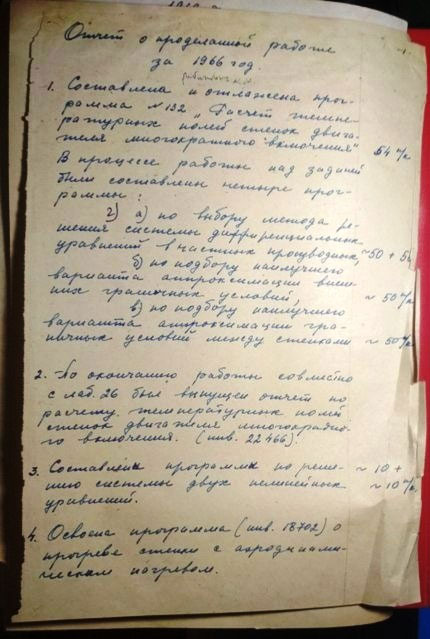 Отчет о проделанной работе
за 1966 год.
1. Составлена и отлажена прог-
рамма №132 „Расчет темпе-
ратурных полей стенок двига-
теля многократного включения" 54 м/к
В процессе работы над задачей
были составлены четыре прог-
раммы:
2) а) по выбору метода ре-
шения системы дифференциальных
уравнений в частных производных, ~50 +
б) по подбору наилучшего
варианта аппроксимации внеш-
них граничных условий, ~ 50 м/к
в) по подбору наилучшего
варианта аппроксимации гра-
ничных условий между стенками ~ 50 м/к
2. По окончанию работы совместно
с лаб. 26 был выпущен отчет по
расчету температурных полей
стенок двигателя многократно-
го включения. (инв. 22466).
3. Составлена программа по реше- ~ 10 +
нию системы двух нелинейных ~ 10 м/к
уравнений.
4. Освоена программа (инв. 18702) о
прогреве стенки с аэродинами-
ческим нагревом.